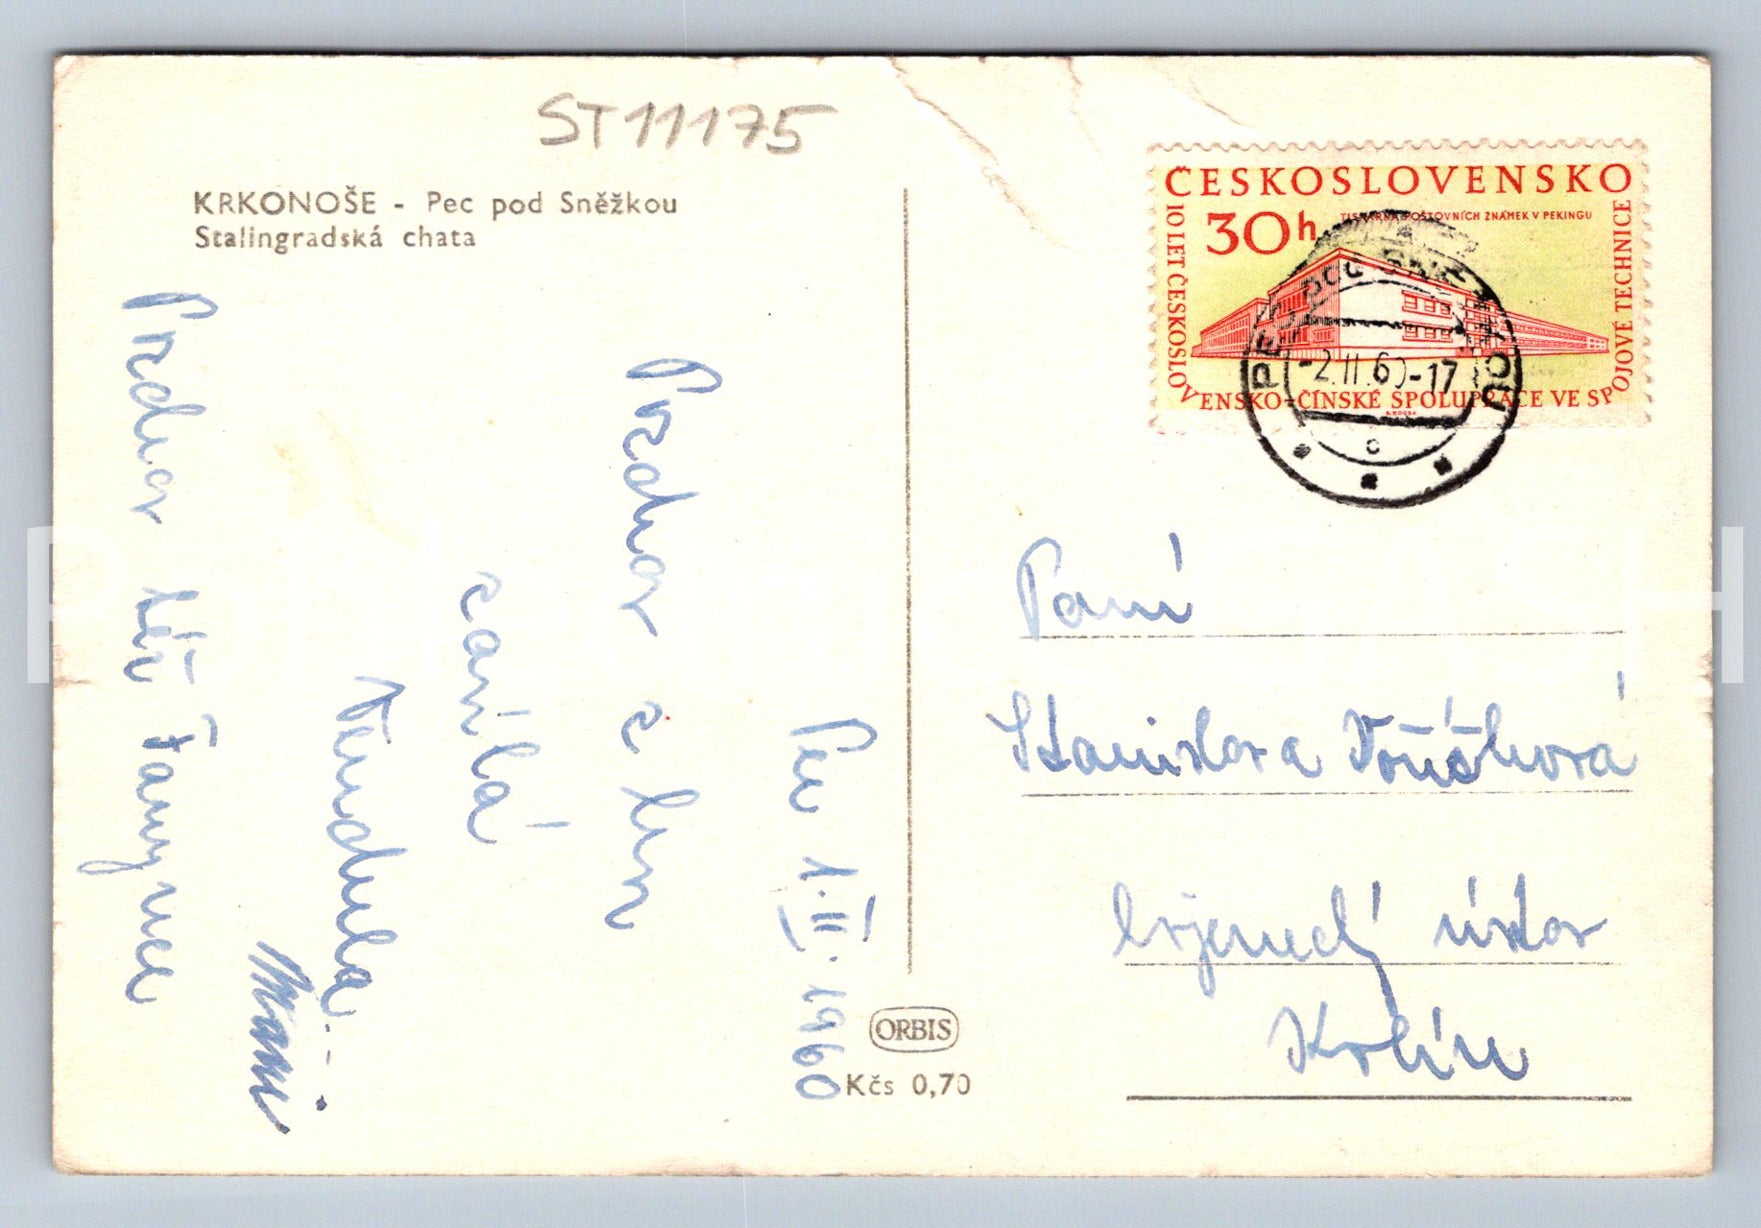 ST11175
KRKONOŠE - Pec pod Sněžkou
Stalingradská chata
ČESKOSLOVENSKO
30h
TISKÁRNA POŠTOVNÍCH ZNÁMEK V PEKINGU
10 LET ČESKOSLOVENSKO-ČÍNSKÉ SPOLUPRÁCE VE SPOJOVÉ TECHNICE
PEC POD SNĚŽKOU
-2.II.60-17
c
Pec 1.II.1960
Pozdrav z hor
zasílá
Mani
Pozdrav též
Paní
Stanislava
ústav
Kolín
ORBIS
Kčs 0,70